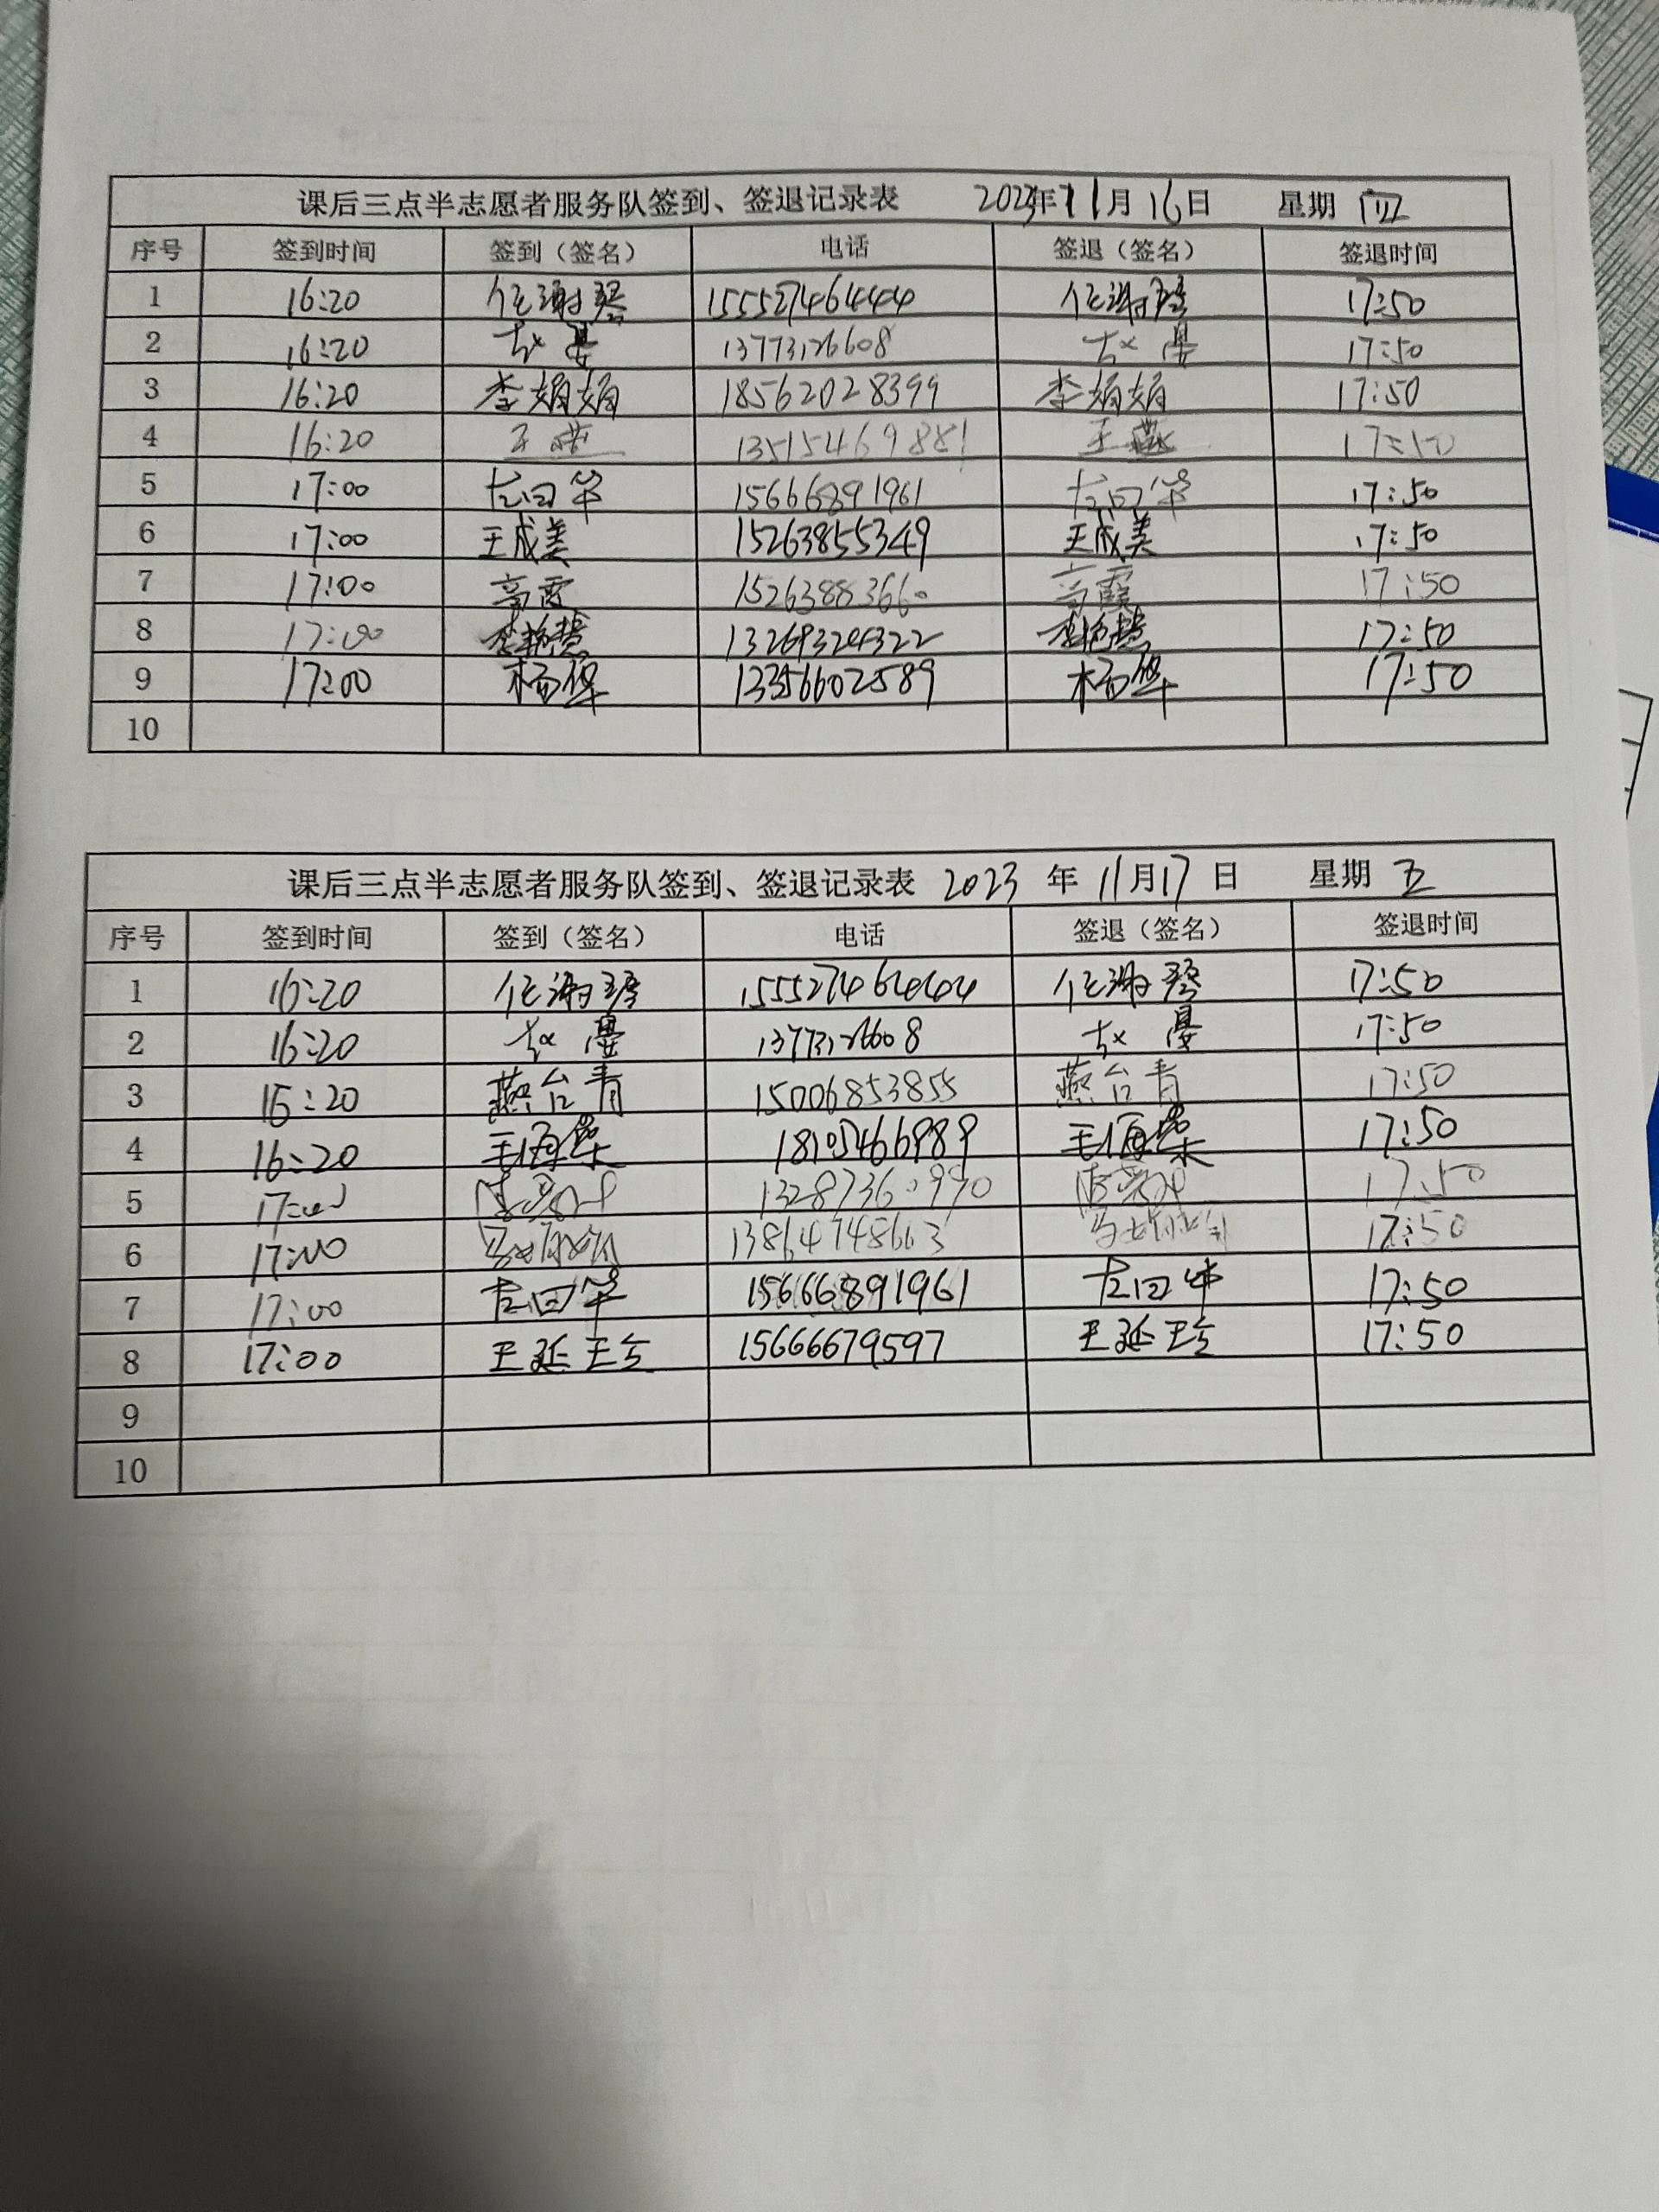 课后三点半志愿者服务队签到、签退记录表 2023年11月16日 星期 四
序号 签到时间 签到（签名） 电话 签退（签名） 签退时间
1 16:20 15552746444 17:50
2 16:20 赵 13773126608 赵 17:50
3 16:20 李娟娟 18562028399 李娟娟 17:50
4 16:20 王 13515469881 王
5 17:00 左回华 15666891961 左回华 17:50
6 17:00 王成美 15263855349 王成美 17:50
7 17:00 高霞 15263883660 高霞 17:50
8 17:00 李艳慧 13269324322 李艳慧 17:50
9 17:00 杨华 13356602589 杨华 17:50
10
课后三点半志愿者服务队签到、签退记录表 2023 年 11月17日 星期 五
序号 签到时间 签到（签名） 电话 签退（签名） 签退时间
1 16:20 15552746444 17:50
2 16:20 赵 13773126608 赵 17:50
3 16:20 燕台青 15006853855 燕台青 17:50
4 16:20 毛海荣 18105466989 毛海荣 17:50
5 17:00 13287360990 17:50
6 17:00 13864748663 17:50
7 17:00 左回华 15666891961 左回华 17:50
8 17:00 王延玲 15666679597 王延玲 17:50
9
10